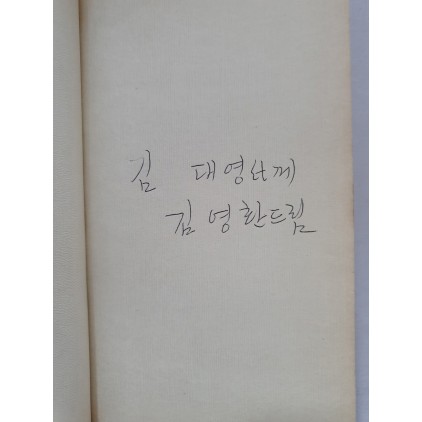 김 대영사께
김영환드림